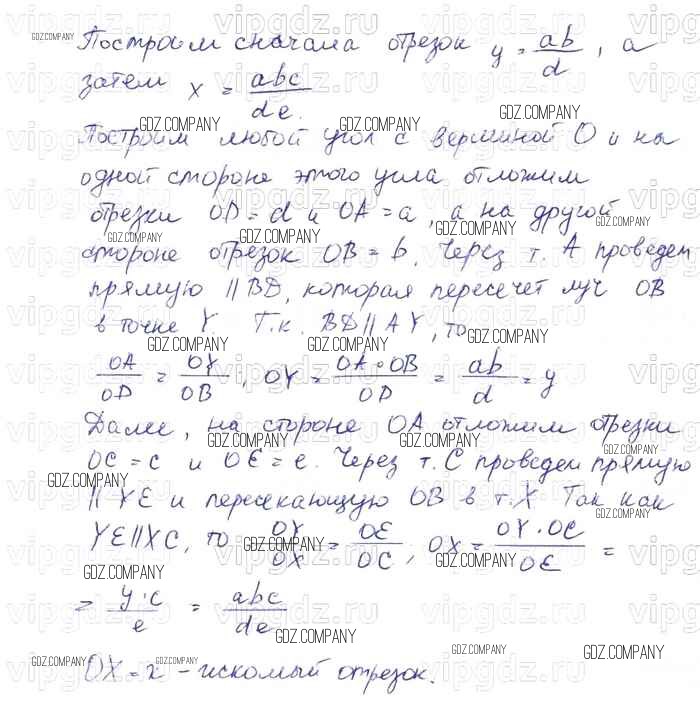 Построим сначала отрезок y = ab/d, а
затем x = abc/de.
Построим любой угол с вершиной O и на
одной стороне этого угла отложим
отрезки OD = d и OA = a, а на другой
стороне отрезок OB = b. Через т. A проведем
прямую || BD, которая пересечет луч OB
в точке Y. Т.к. BD || AY, то
OA/OD = OY/OB, OY = OA • OB/OD = ab/d = y
Далее, на стороне OA отложим отрезки
OC = c и OE = e. Через т. C проведем прямую
|| YE и пересекающую OB в т. X. Так как
YE || XC, то OY/OX = OE/OC, OX = OY · OC/OE =
= y·c/e = abc/de
OX = x – искомый отрезок.